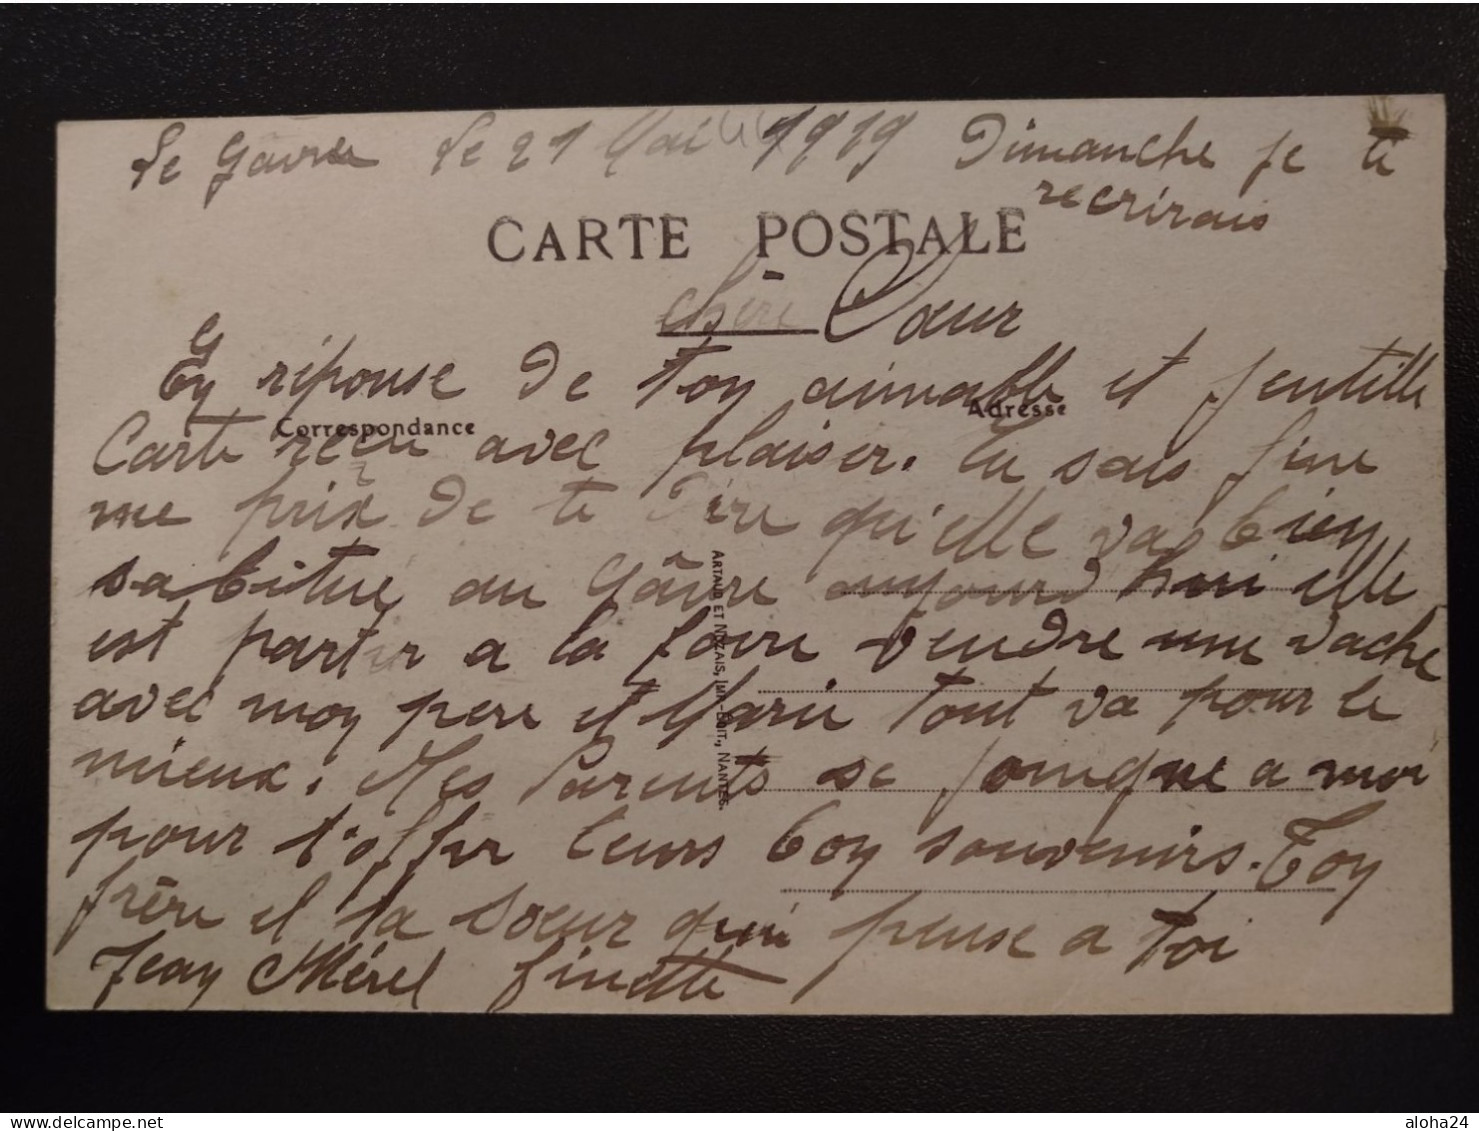 Le Gâvre le 21 Mai 1919 Dimanche je te
recrirais
CARTE POSTALE
chère Sœur
En réponse de ton aimable et gentille
Correspondance
Adresse
Carte reçu avec plaiser. tu sais fine
me prix de te dire qu'elle va bien
sabitue au Gâvre aujourd hui elle
est partir a la foire vendre une vache
avec mon pere et Marie tout va pour le
mieux. Mes Parents se joingne a moi
pour t'offrir leurs bon souvenirs. Ton
frère et ta sœur qui pense a toi
Jean Mérel finette
ARTAUD ET NOZAIS, IMP.-EDIT., NANTES.
aloha24